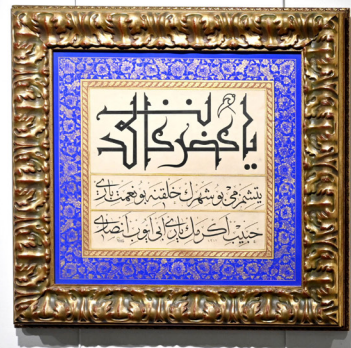 يا حضرت خالد
يتشمزمي بو شهرك خلقنه بو نعمت باري
حبيب اكرمك ياري ابي ايوب انصاري